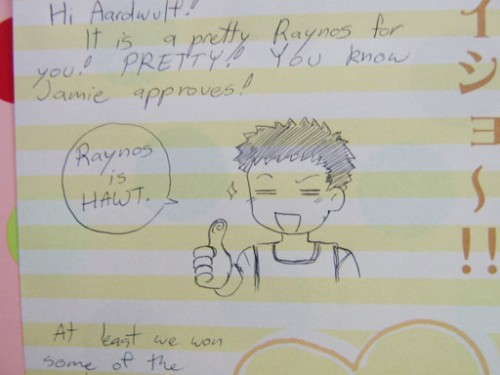 Hi Aardwulf!
It is a pretty Raynos for
you! PRETTY! You know
Jamie approves!
Raynos
is
HAWT.
At least we won
some of the
イショ〜!!